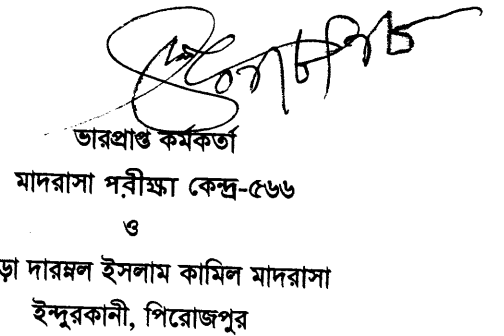 ভারপ্রাপ্ত কর্মকর্তা
মাদরাসা পরীক্ষা কেন্দ্র-৫৬৬
ও
ড়া দারুল ইসলাম কামিল মাদরাসা
ইন্দুরকানী, পিরোজপুর